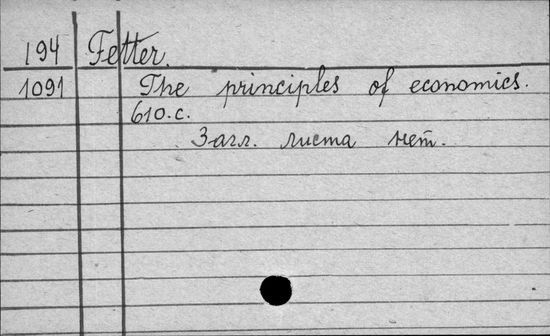 194 Fetter.
1091 The principles of economics.
610.c.
Загл. листа нет.